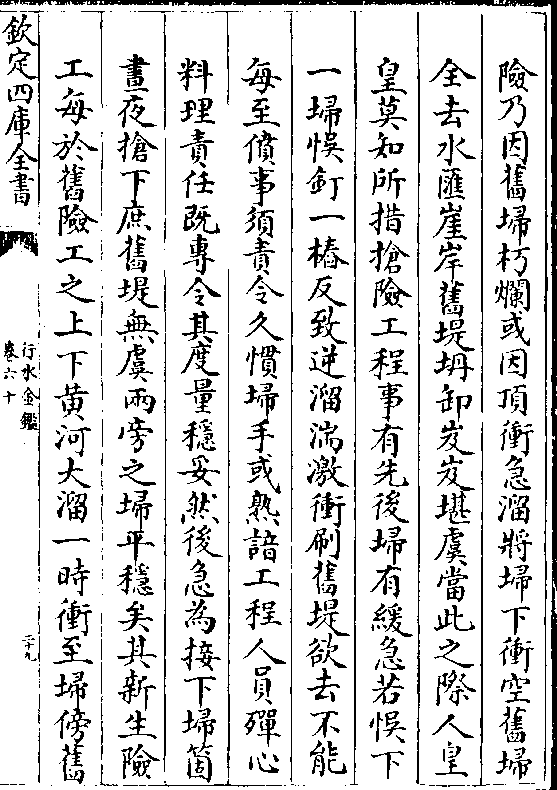 險乃因舊埽朽爛或因頂衝急溜將埽下衝空舊埽
全去水匯崖岸舊堤坍卸岌岌堪虞當此之際人皇
皇莫知所措搶險工程事有先後埽有緩急若悞下
一埽悞釘一樁反致逆溜湍激衝刷舊堤欲去不能
每至僨事須責令久慣埽手或熟諳工程人員殫心
料理責任既專令其度量穩妥然後急為接下埽箇
晝夜搶下庶舊堤無虞兩旁之埽平穩矣其新生險
工每於舊險工之上下黃河大溜一時衝至埽傍舊
欽定四庫全書
行水金鑑
卷六十
二十九